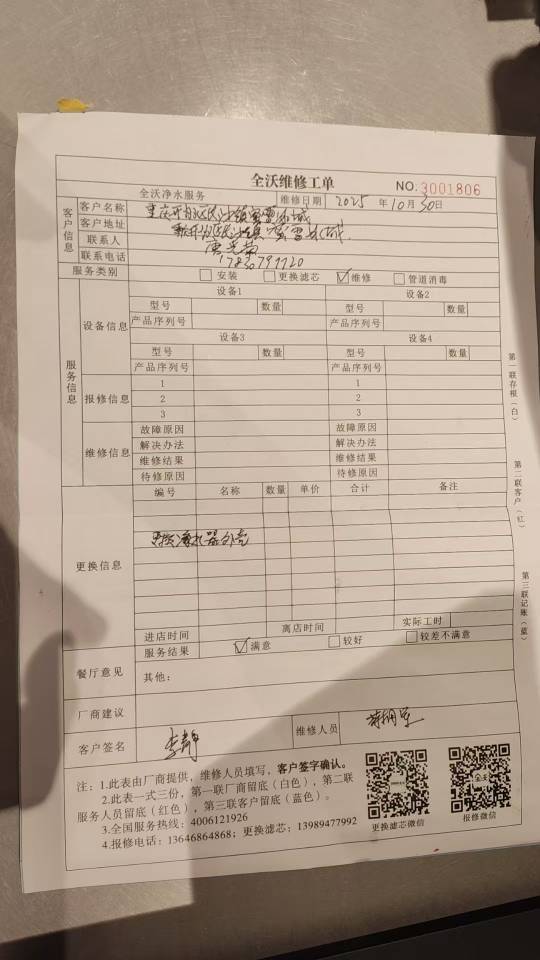 全沃维修工单
NO. 3001806
全沃净水服务 维修日期 2025 年 10 月 30 日
客户信息
客户名称
客户地址
联系人
联系电话
服务类别 安装 更换滤芯 ☑ 维修 管道消毒
服务信息
设备信息
设备1 设备2
型号 数量 型号 数量
产品序列号 产品序列号
设备3 设备4
型号 数量 型号 数量
产品序列号 产品序列号
报修信息
1 1
2 2
3 3
维修信息
故障原因 故障原因
解决办法 解决办法
维修结果 维修结果
待修原因 待修原因
更换信息
编号 名称 数量 单价 合计 备注
净水器外壳
进店时间 离店时间 实际工时
餐厅意见
服务结果 ☑ 满意 较好 较差不满意
其他：
厂商建议
客户签名 李静 维修人员
注：1.此表由厂商提供，维修人员填写，客户签字确认。
2.此表一式三份，第一联厂商留底（白色），第二联
服务人员留底（红色），第三联客户留底（蓝色）。
3.全国服务热线：4006121926
4.报修电话：13646864868；更换滤芯：13989477992
更换滤芯微信 报修微信
第一联存根（白）
第二联客户（红）
第三联记账（蓝）